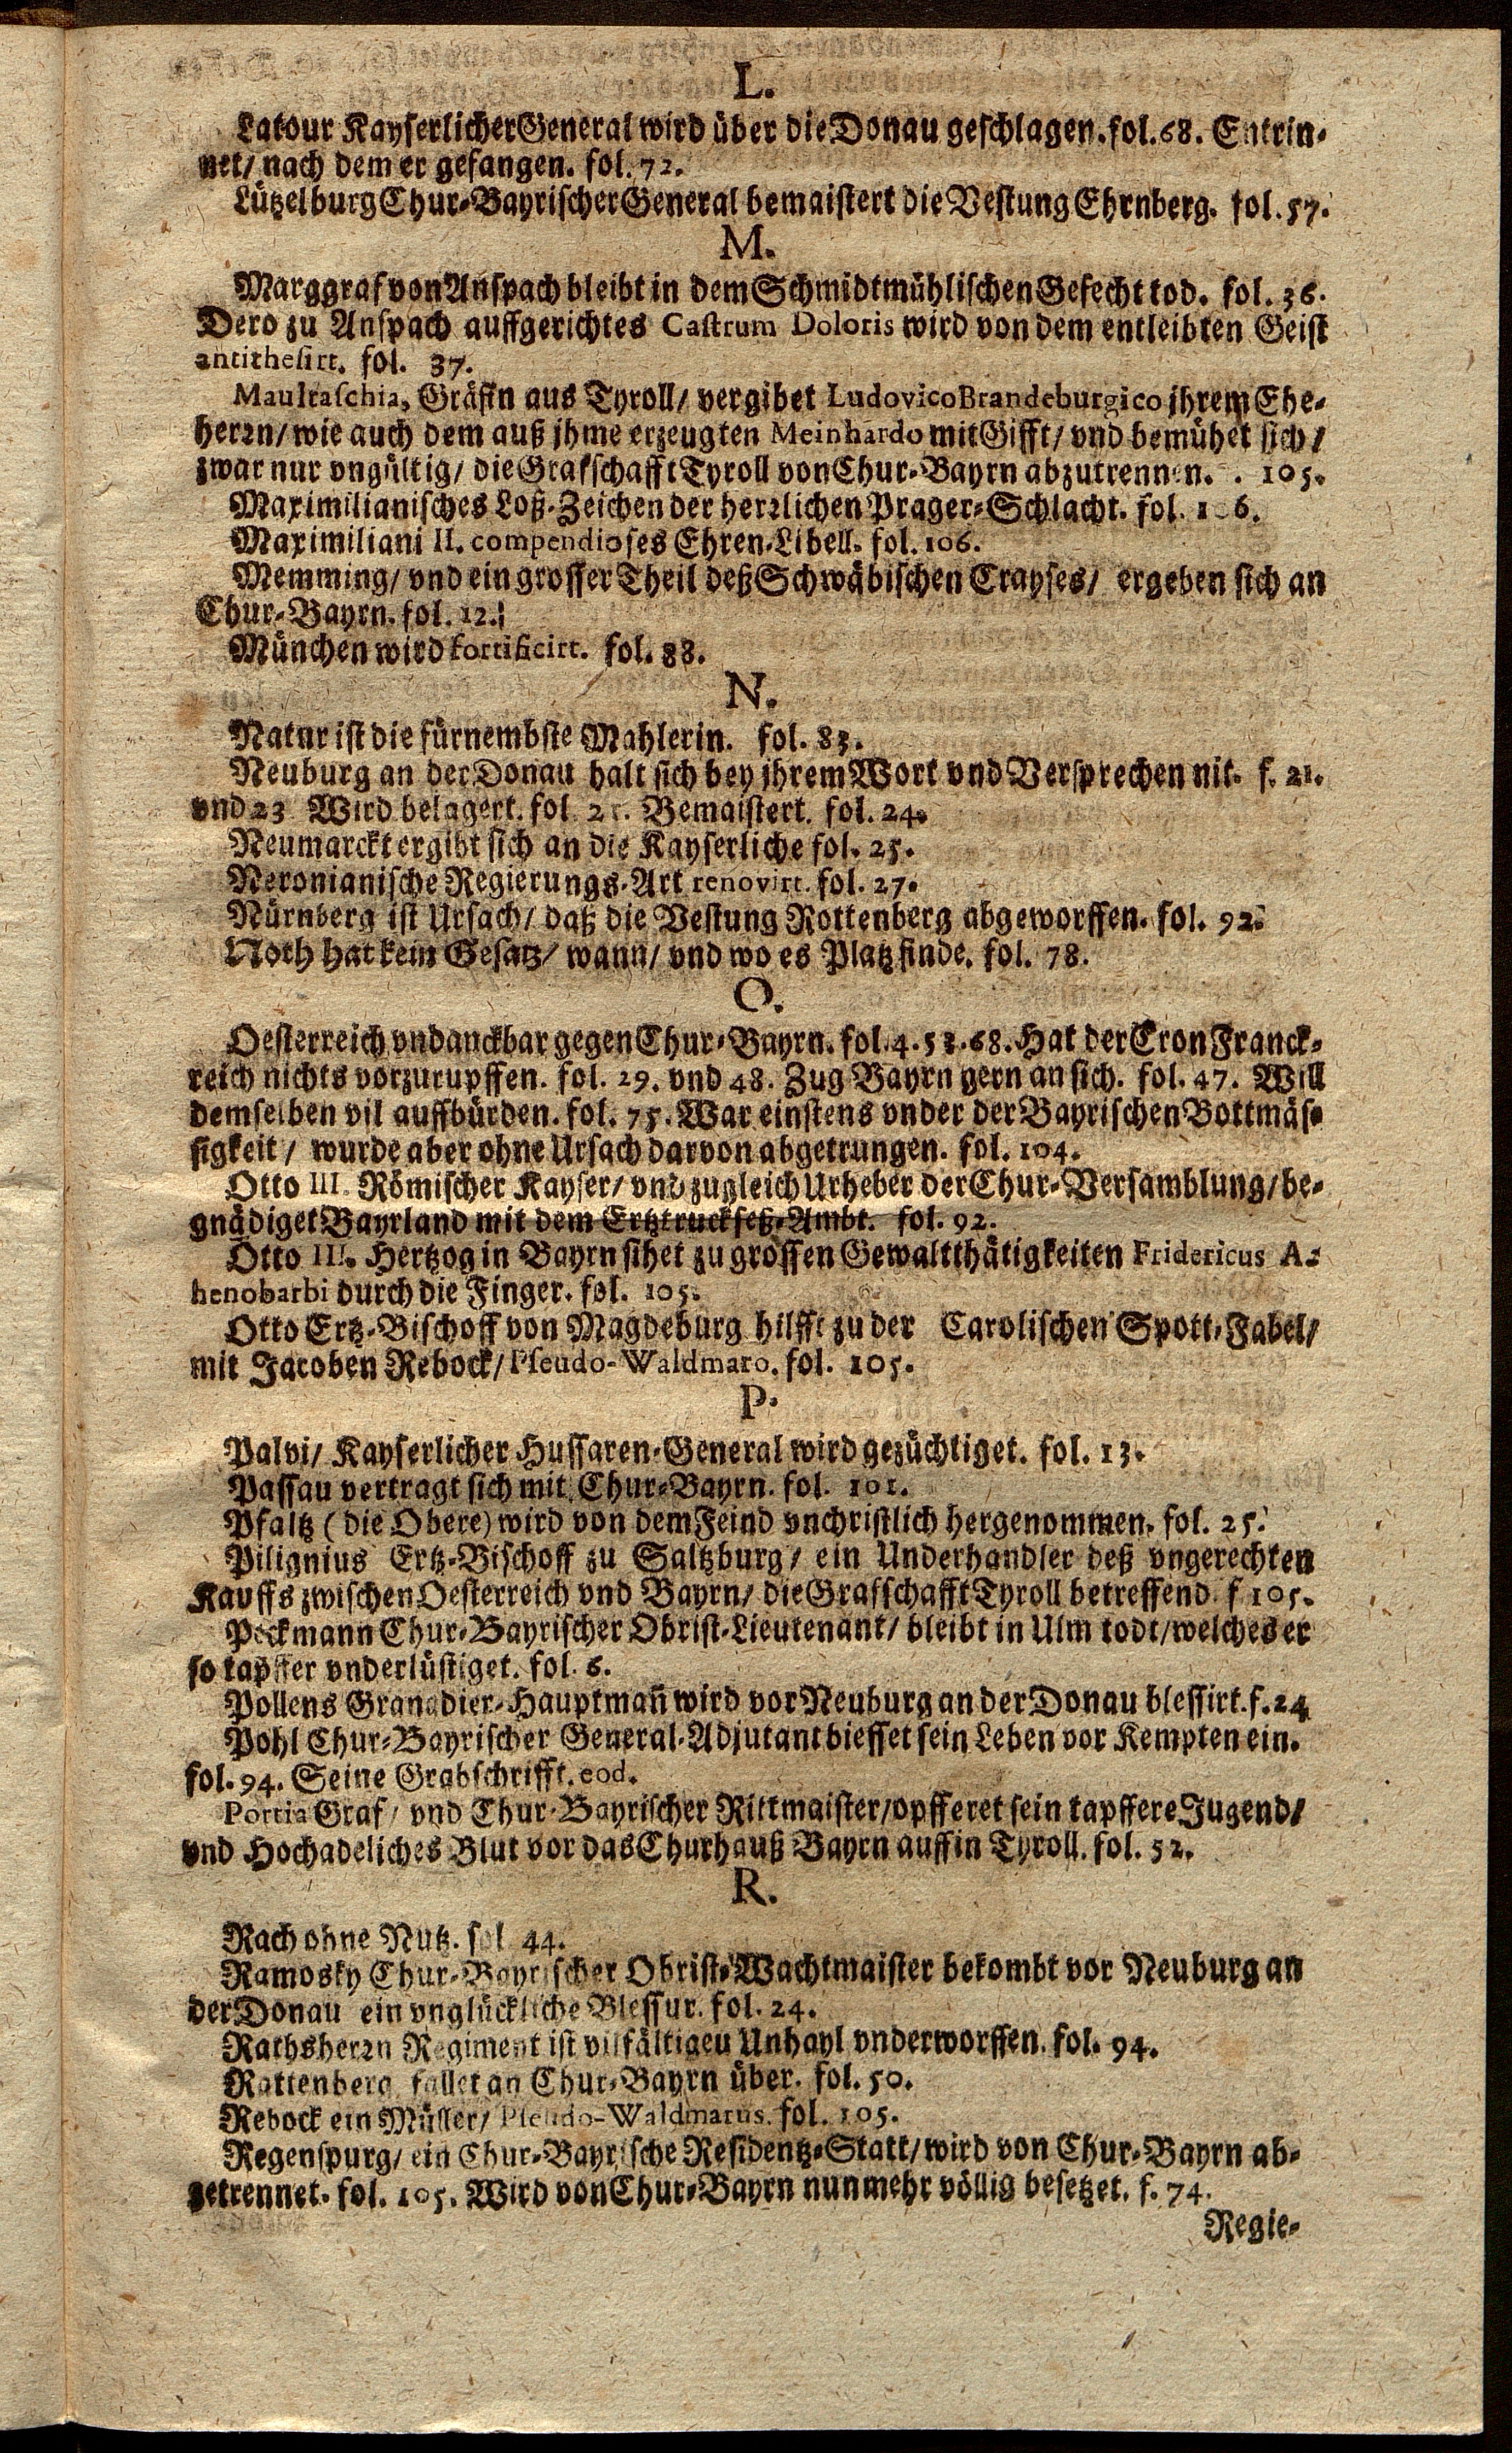 L.
Latour Kayserlicher General wird über die Donau geschlagen. fol. 68. Entrin-
net/ nach dem er gefangen. fol. 72.
Lützelburg Chur-Bayrischer General bemaistert die Vestung Ehrnberg. fol. 57.
M.
Marggraf von Anspach bleibt in dem Schmidtmühlischen Gefecht tod. fol. 36.
Dero zu Anspach auffgerichtes Castrum Doloris wird von dem entleibten Geist
antithesirt. fol. 37.
Maultaschia, Gräfin aus Tyroll/ vergibet Ludovico Brandeburgico jhrem Ehe-
herrn/ wie auch dem auß jhme erzeugten Meinhardo mit Gifft/ vnd bemühet sich/
zwar nur vngültig/ die Grafschafft Tyroll von Chur-Bayrn abzutrennen. . 105.
Maximilianisches Loß-Zeichen der herrlichen Prager-Schlacht. fol. 1 6.
Maximiliani II. compendioses Ehren-Libell. fol. 106.
Memming/ vnd ein grosser Theil deß Schwäbischen Crayses/ ergeben sich an
Chur-Bayrn. fol. 12.
München wird fortificirt. fol. 88.
N.
Natur ist die fürnembste Mahlerin. fol. 83.
Neuburg an der Donau halt sich bey jhrem Wort vnd Versprechen nit. f. 21.
vnd 23 Wird belagert. fol. Bemaistert. fol. 24.
Neumarckt ergibt sich an die Kayserliche fol. 25.
Neronianische Regierungs-Art renovirt. fol. 27.
Nürnberg ist Ursach/ daß die Vestung Rottenberg abgeworffen. fol. 92.
Noth hat kein Gesatz/ wann/ vnd wo es Platz finde. fol. 78.
O.
Oesterreich vndanckbar gegen Chur-Bayrn. fol. 4. 53. 68. Hat der Cron Franck-
reich nichts vorzurupffen. fol. 29. vnd 48. Zug Bayrn gern an sich. fol. 47. Will
demselben vil auffbürden. fol. 75. War einstens vnder der Bayrischen Bottmäs-
sigkeit/ wurde aber ohne Ursach darvon abgetrungen. fol. 104.
Otto III. Römischer Kayser/ vnd zugleich Urheber der Chur-Versamblung/ be-
gnädiget Bayrland mit dem Ertztruckseß-Ambt. fol. 92.
Otto III. Hertzog in Bayrn sihet zu grossen Gewaltthätigkeiten Fridericus A-
henobarbi durch die Finger. fol. 105.
Otto Ertz-Bischoff von Magdeburg hilfft zu der Carolischen Spott-Fabel/
mit Jacoben Rebock/ Pseudo-Waldmaro. fol. 105.
P.
Palvi/ Kayserlicher Hussaren-General wird gezüchtiget. fol. 13.
Passau vertragt sich mit Chur-Bayrn. fol. 101.
Pfaltz (die Obere) wird von dem Feind vnchristlich hergenommen. fol. 25.
Pilignius Ertz-Bischoff zu Saltzburg/ ein Underhandler deß vngerechten
Kauffs zwischen Oesterreich vnd Bayrn/ die Grafschafft Tyroll betreffend. f 105.
Pockmann Chur-Bayrischer Obrist-Lieutenant/ bleibt in Ulm todt/ welches er
so tapffer vnderlüstiget. fol. 6.
Pollens Granadier-Hauptmañ wird vor Neuburg an der Donau blessirt. f. 24
Pohl Chur-Bayrischer General-Adjutant biesset sein Leben vor Kempten ein.
fol. 94. Seine Grabschrifft. eod.
Portia Graf/ vnd Chur-Bayrischer Rittmaister/ opfferet sein tapffere Jugend/
vnd Hochadeliches Blut vor das Churhauß Bayrn auff in Tyroll. fol. 52.
R.
Rach ohne Nutz. fol 44.
Ramosky Chur-Bayrischer Obrist-Wachtmaister bekombt vor Neuburg an
der Donau ein vnglückliche Blessur. fol. 24.
Rathsherrn Regiment ist vilfältigen Unhayl vnderworffen. fol. 94.
Rattenberg fallet an Chur-Bayrn über. fol. 50.
Rebock ein Müller/ Pseudo-Waldmarus. fol. 105.
Regenspurg/ ein Chur-Bayrische Residentz-Statt/ wird von Chur-Bayrn ab-
getrennet. fol. 105. Wird von Chur-Bayrn nunmehr völlig besetzet. f. 74.
Regie-